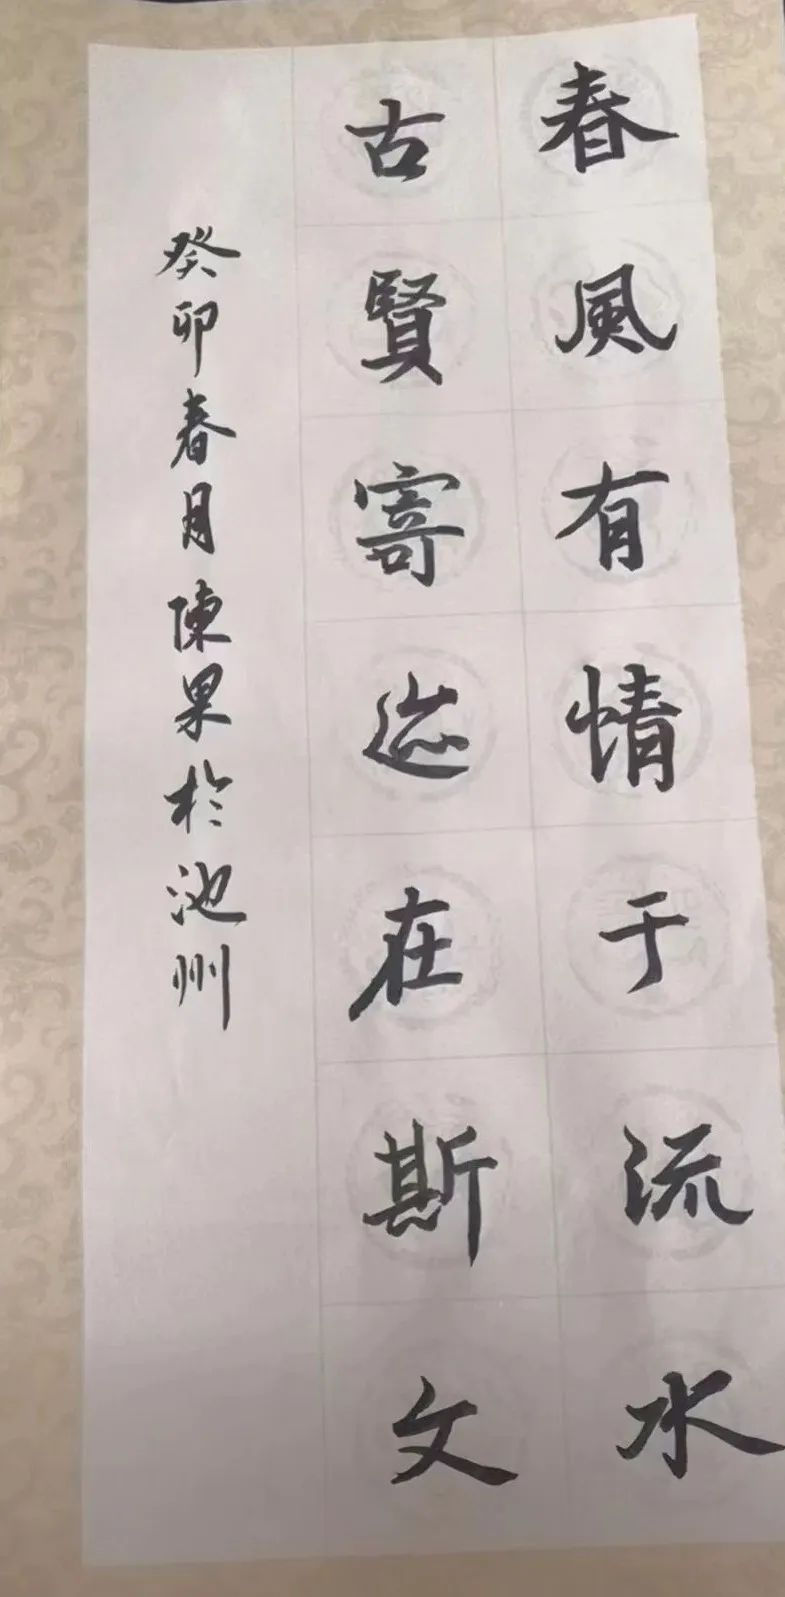 春風有情于流水
古賢寄迹在斯文
癸卯春月陳果於池州